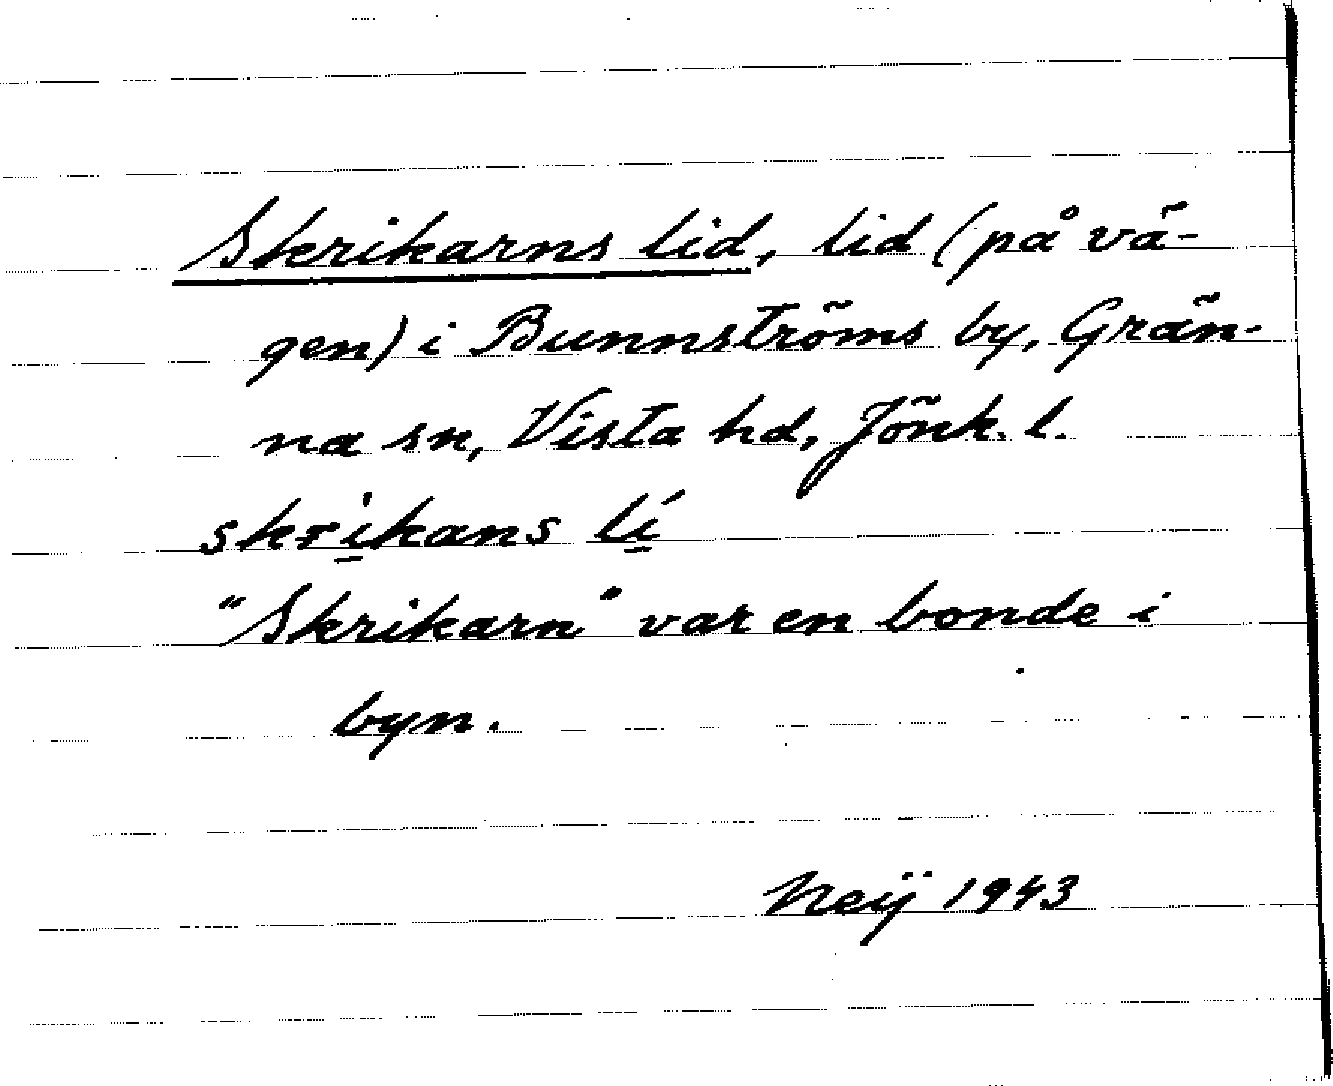 Skrikarns lid, lid (på vä-
gen) i Bunnströms by, Grän-
na sn, Vista hd, Jönk. l.
skri̱kans lí̱
"Skrikarn" var en bonde i
byn.
Neÿ 1943